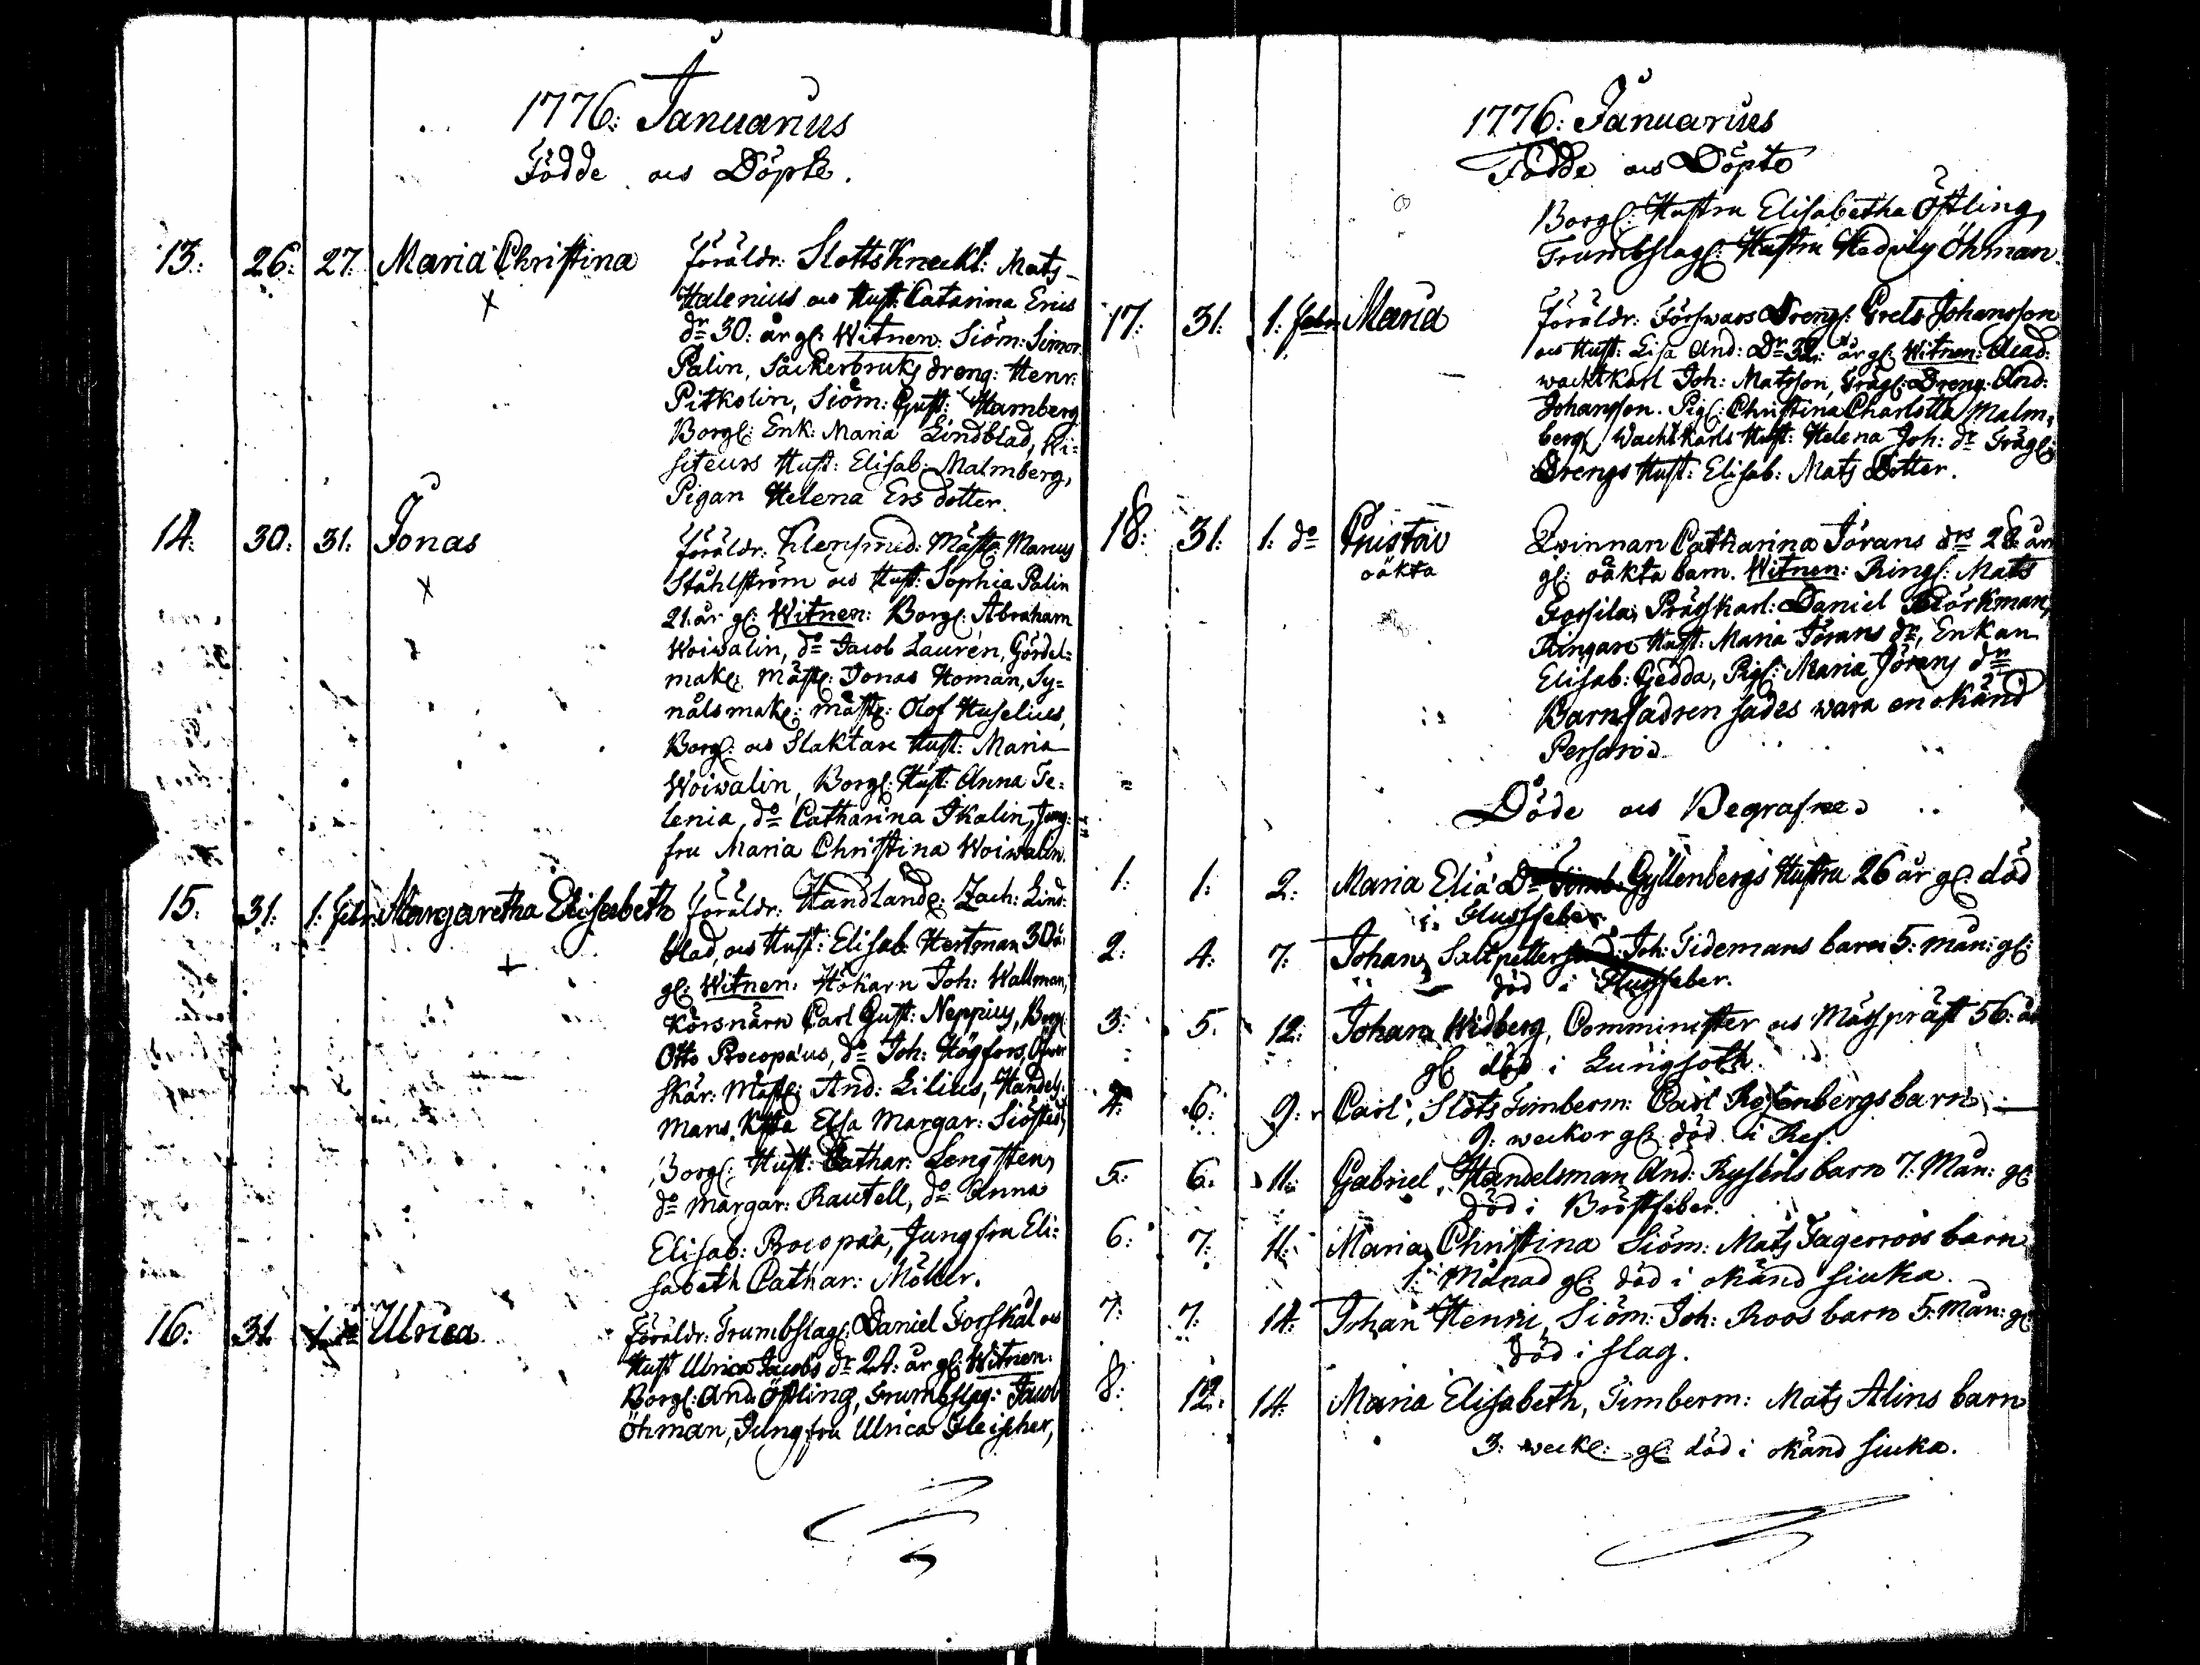 1776: Januarius
Födde och Döpte.
13: 26: 27. Maria Christina Föräldr: SlottsKneckt: Mats
Halenius och Hust: Catarina Erics
dr 30: år gl: Witnen: Siöm: Simon
Palin, Såckerbruks dreng: Henr:
Pitkolin, Siöm: Gust: Hamberg
Borgl: Enk: Maria Lindblad, Wi=
siteurs Hust: Elisab: Malmberg,
Pigan Helena Ers dotter.
14. 30: 31: Jonas Föräldr: Klensmid: Mäst: Marcus
Ståhlström och Hust: Sophia Palin
21. år gl: Witnen: Borgl: Abraham
Woiwalin, do Jacob Laurén, Gördel=
mak: Mäst: Jonas Homan, Sy=
nålsmak: mäst: Olof Huselius,
Borgl: och Slaktare Hust: Maria
Woiwalin, Borgl: Hust: Anna Te=
lenia, do Catharina Ikalin, Jung:
fru Maria Christina Woiwalin.
15. 31. 1. febr: Margaretha Elisabeth Föräldr: Handland: Zach: Lind:
blad, och Hust: Elisab: Hertman 30 å:
gl: Witnen: Hökarn Joh: Wallman,
Körsnärn Carl Gust: Neppius, Borgl:
Otto Procopæus, do Joh: Högfors,
skär: Mäst: And: Lilius, Handels:
mans Elsa Margar: Siöstedt,
Borgl: Hust: Cathar: Lengsten,
do Margar: Rautell, do Anna
Elisab: Procopæa, Jungfru Eli:
sabeth Cathar: Möller.
16: 31. 1. do Ulrica Föräldr: Trumbslag: Daniel Forskål och
Hust Ulrica Jacobs dr 24: år gl: Witnen:
Borgl: And: Östling, Trumbslag: Jacob
Öhman, Jungfru Ulrica Fleischer,
1776: Januarius
Födde och Döpte
Borgl: Hustru Elisabetha Östling,
Trumbslag: Hustru Hedvig Öhman.
17: 31. 1. febr Maria Föräldr: Förswars Drengl: Grels Johansson
och Hust: Lisa And: Dr 32: år gl: Witnen: Acad:
wachtkarl Joh: Matsson, Trägl: Dreng: And:
Johansson. Pigl: Christina Charlotta Malm=
berg, Wachtkarls Hust: Helena Joh: dr Trägl:
Drengs Hust: Elisab: Mats Dotter.
18: 31. 1. do Gustav Qvinnan Catharina Jörans drs 28: års
oäkta gl: oäkta barn. Witnen: Ringl: Mats
Forsila, Prässkarl: Daniel Biörkman,
Ringare Hust: Maria Jörans dr, Enkan
Elisab: Gedda, Pigl: Maria Jörans dr
Barnfadren sades wara en okänd
Person.
Döde och Begrafne
1. 1. 2. Maria Elia Dr Timb: Gyllenbergs Hustru 26 år gl: död
i Flussfeber.
2: 4: 7: Johan, Saltpettersiud: Joh: Tidemans barn 5: mån: gl:
död i Flussfeber.
3: 5. 12: Johan Widberg, Comminister och Mässpräst 56: år
gl: död i Lungsoth.
4: 6: 9: Carl, Slots Timberm: Carl Rosenbergs barn
9: weckor gl: död i Ref.
5: 6. 11: Gabriel, Handelsman And: barn 7: Mån: gl:
död i Bröstfeber.
6: 7: 11: Maria Christina Siöm: Mats Fagerroos barn
1: Månad gl: död i okänd siuka.
7: 7: 14: Johan Henric, Siöm: Joh: Roos barn 5: Mån: gl:
död i slag.
8: 12: 14: Maria Elisabeth, Timberm: Mats Alins barn
3: weck: gl: död i okänd siuka.